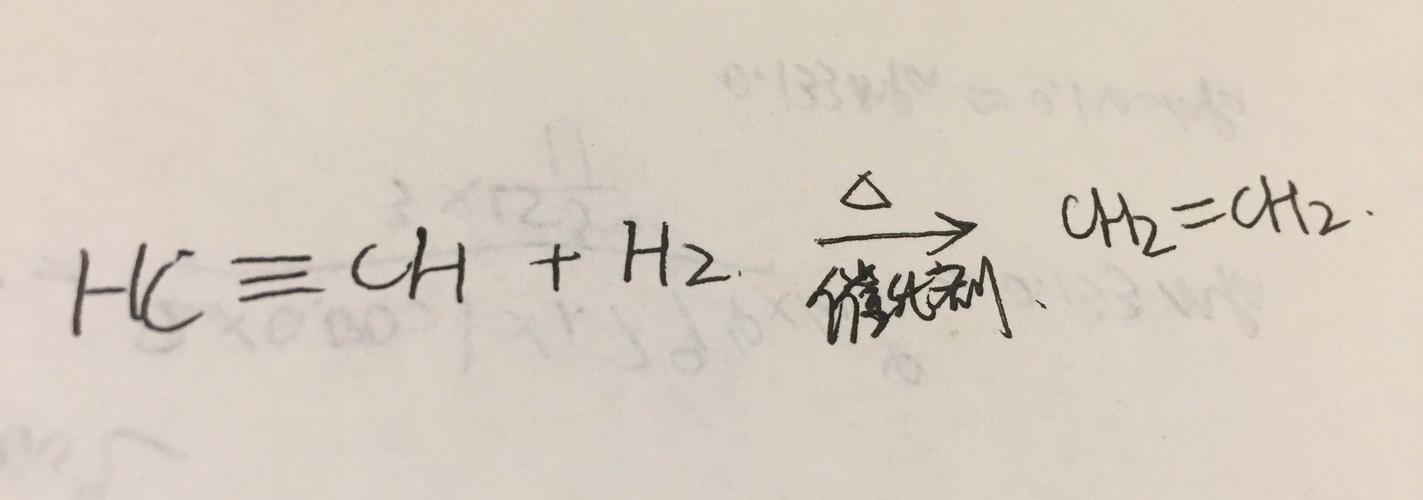 HC≡CH + H2 △→催化剂 CH2=CH2.